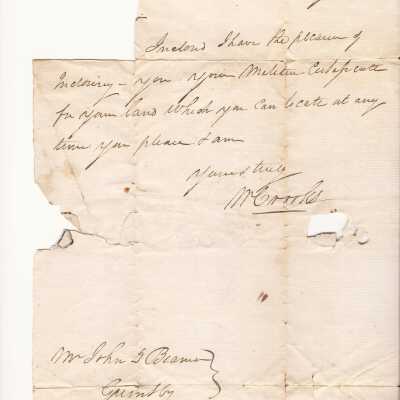 Inclosed I have the pleasure of
Inclosing - you your Militia Certificate
for your land which you can locate at any
time you please I am
Yours truly
Wm Crooks
Mr John D Beamer
Grimsby